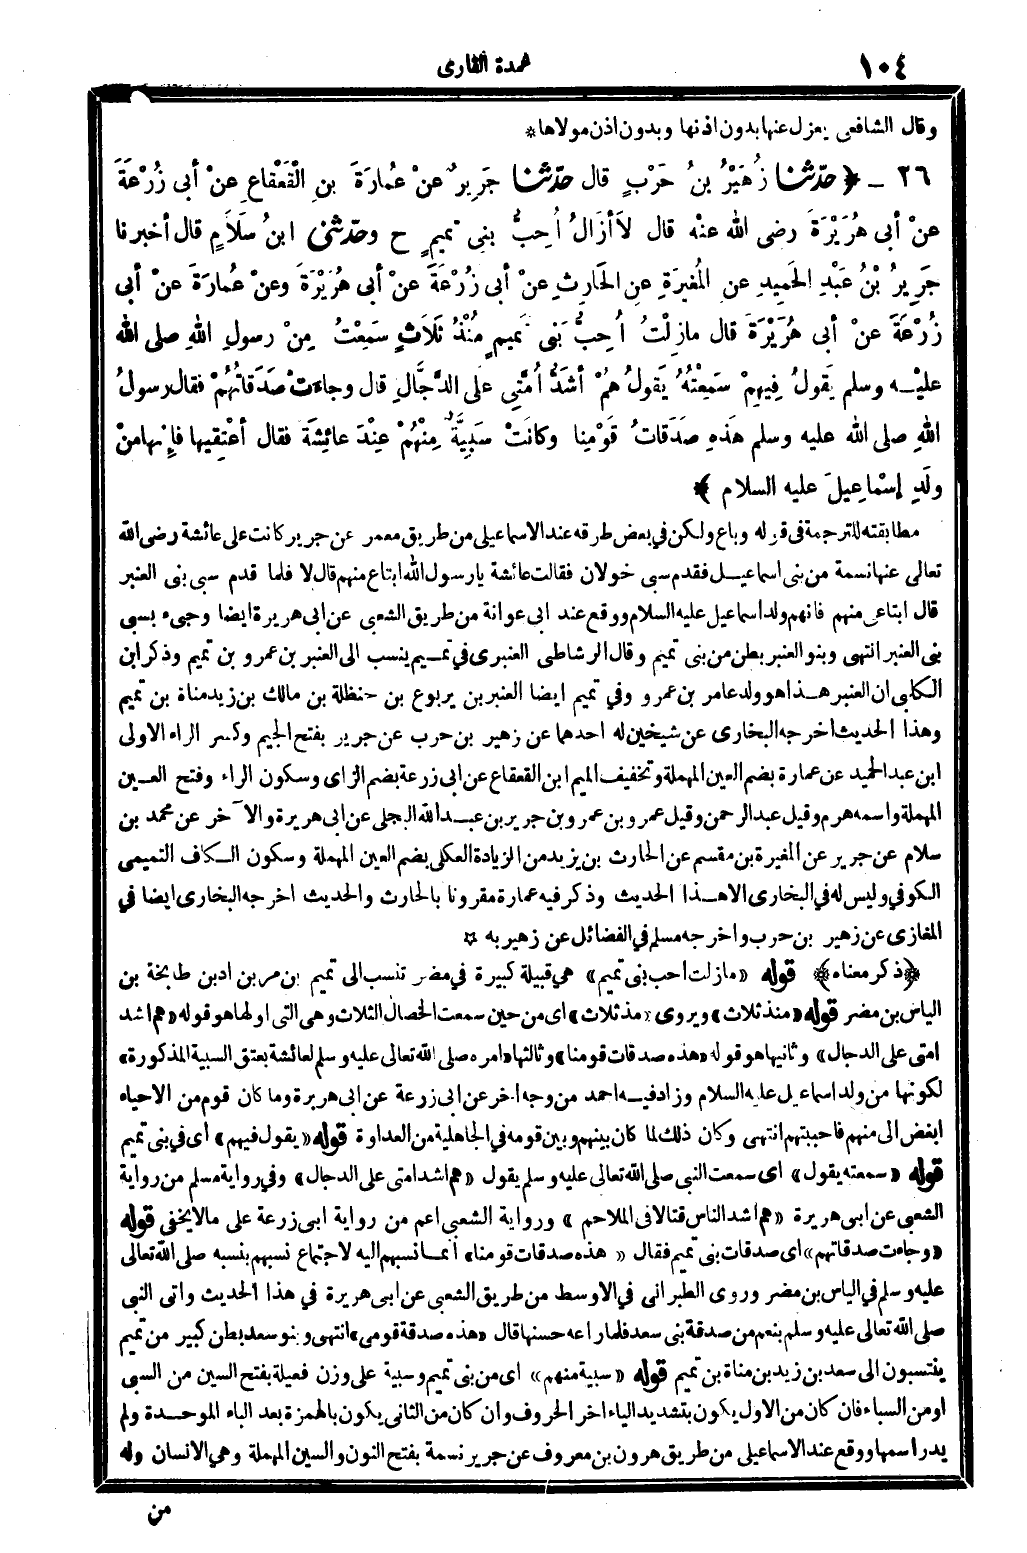 ١٠٤
عمدة القارى
وقال الشافعى يعزل عنها بدون اذنها وبدون اذن مولاها *
٢٦ ـ ﴿ حدّثنا زُهَيْرُ بنُ حَرْبٍ قال حدّثنا جَرِيرٌ عنْ عُمارَةَ بنِ القَعْقاعِ عنْ أبى زُرْعَةَ
عنْ أبى هُرَيْرَةَ رضى الله عنْه قال لاَ أزَالُ أُحِبُّ بنِى تمِيمٍ ح وحدّثنى ابنُ سَلاَمٍ قال أخبرنا
جَرِيرُ بْنُ عَبْدِ الحَمِيدِ عنِ المُغيرَةِ عنِ الحَارِثِ عنْ أبى زُرْعَةَ عنْ أبى هُرَيْرَةَ وعنْ عُمارَةَ عنْ أبى
زُرْعَةَ عنْ أبى هُرَيْرَةَ قال مازِلْتُ أُحِبُّ بَنِى تَمِيمٍ مُنْذُ ثَلاَثٍ سَمِعْتُ مِنْ رسولِ اللهِ صلى الله
عليْه وسلم يَقولُ فِيهِمْ سَمِعْتُهُ يَقولُ هُمْ أشَدُّ أُمَّتِى على الدَّجَّالِ قال وجاءَتْ صَدَقاتُهُمْ فقال رسولُ
اللهِ صلى الله عليه وسلم هَذِهِ صدَقاتُ قَوْمِنا وكانَتْ سَبِيَّةٌ مِنْهُمْ عِنْدَ عائِشَةَ فقال أعْتِقِيها فإنَّها مِنْ
ولَدِ إسْماعِيلَ عليه السلام ﴾
مطابقته للترجمة فى قوله وباع ولكن فى بعض طرقه عند الاسماعيلى من طريق معمر عن جرير كانت على عائشة رضى الله
تعالى عنها نسمة من بنى اسماعيل فقدم سبى خولان فقالت عائشة يارسول الله ابتاع منهم قال لا فلما قدم سبى بنى العنبر
قال ابتاعى منهم فانهم ولد اسماعيل عليه السلام ووقع عند ابى عوانة من طريق الشعبى عن ابى هريرة ايضا وجىء بسبى
بنى العنبر انتهى وبنو العنبر بطن من بنى تميم وقال الرشاطى العنبرى فى تميم ينسب الى العنبر بن عمرو بن تميم وذكر ابن
الكلبى ان العنبر هذا هو ولد عامر بن عمرو وفي تميم ايضا العنبر بن يربوع بن حنظلة بن مالك بن زيد مناة بن تميم
وهذا الحديث اخرجه البخارى عن شيخين له احدهما عن زهير بن حرب عن جرير بفتح الجيم وكسر الراء الاولى
ابن عبد الحميد عن عمارة بضم العين المهملة وتخفيف الميم ابن القعقاع عن ابى زرعة بضم الزاى وسكون الراء وفتح العين
المهملة واسمه هرم وقيل عبد الرحمن وقيل عمرو بن عمرو بن جرير بن عبد الله البجلى عن ابى هريرة والآخر عن محمد بن
سلام عن جرير عن المغيرة بن مقسم عن الحارث بن يزيد من الزيادة العكلى بضم العين المهملة وسكون الكاف التميمى
الكوفي وليس له فى البخارى الا هذا الحديث وذكر فيه عمارة مقرونا بالحارث والحديث اخرجه البخارى ايضا في
المغازى عن زهير بن حرب واخرجه مسلم فى الفضائل عن زهير به *
﴿ذكر معناه﴾ قوله «مازلت احب بنى تميم» هى قبيلة كبيرة فى مضر تنسب الى تميم بن مر بن اد بن طابخة بن
الياس بن مضر قوله «منذ ثلاث» ويروى «مذ ثلاث» اى من حين سمعت الخصال الثلاث وهى التى اولها هو قوله «هم اشد
امتى على الدجال» وثانيها هو قوله «هذه صدقات قومنا» وثالثها «امره صلى الله تعالى عليه وسلم لعائشة بعتق السبية المذكورة»
لكونها من ولد اسماعيل عليه السلام وزاد فيه احمد من وجه اخر عن ابى زرعة عن ابى هريرة وما كان قوم من الاحياء
ابغض الى منهم فاحببتهم انتهى وكان ذلك لما كان بينهم وبين قومه فى الجاهلية من العداوة قوله «يقول فيهم» اى فى بنى تميم
قوله «سمعته يقول» اى سمعت النبى صلى الله تعالى عليه وسلم يقول «هم اشد امتى على الدجال» وفى رواية مسلم من رواية
الشعبى عن ابى هريرة «هم اشد الناس قتالا فى الملاحم» ورواية الشعبى اعم من رواية ابى زرعة على مالايخفى قوله
«وجاءت صدقاتهم» اى صدقات بنى تميم فقال «هذه صدقات قومنا» انما نسبهم اليه لاجتماع نسبهم بنسبه صلى الله تعالى
عليه وسلم فى الياس بن مضر وروى الطبرانى فى الاوسط من طريق الشعبى عن ابى هريرة فى هذا الحديث واتى النبى
صلى الله تعالى عليه وسلم بنعم من صدقة بنى سعد فلما راعه حسنها قال «هذه صدقة قومى» انتهى وبنو سعد بطن كبير من تميم
ينتسبون الى سعد بن زيد بن مناة بن تميم قوله «سبية منهم» اى من بنى تميم وسبية على وزن فعيلة بفتح السين من السبى
اومن السباء فان كان من الاول يكون بتشديد الياء اخر الحروف وان كان من الثانى يكون بالهمزة بعد الباء الموحدة ولم
يدر اسمها ووقع عند الاسماعيلى من طريق هرون بن معروف عن جرير نسمة بفتح النون والسين المهملة وهى الانسان وله
من